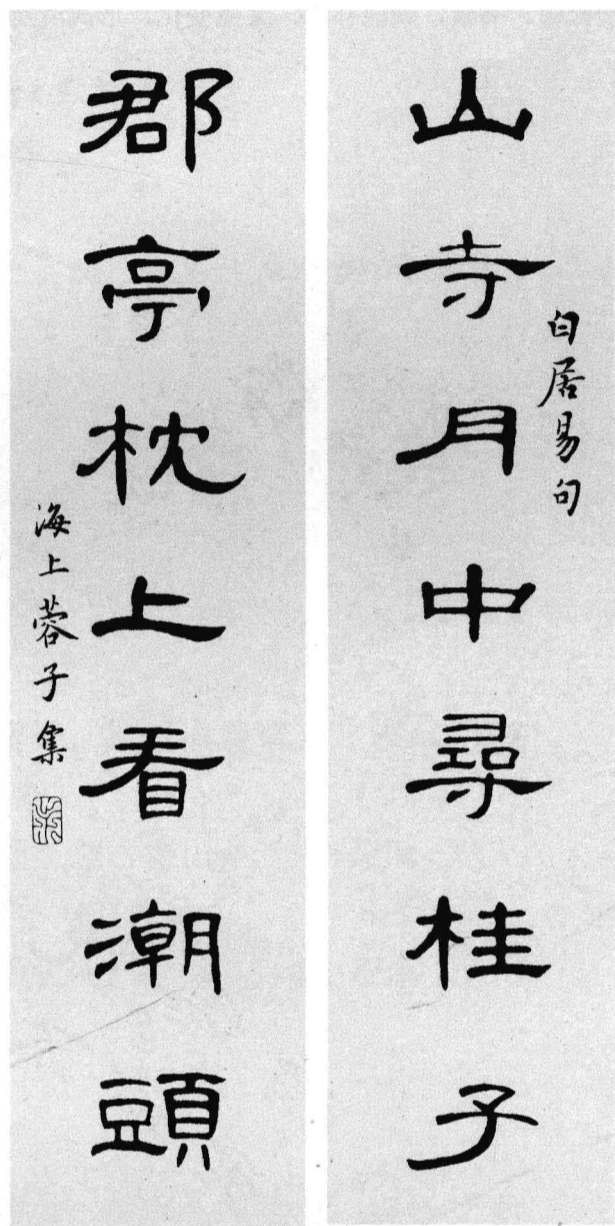 山寺月中尋桂子
白居易句
郡亭枕上看潮頭
海上蓉子集